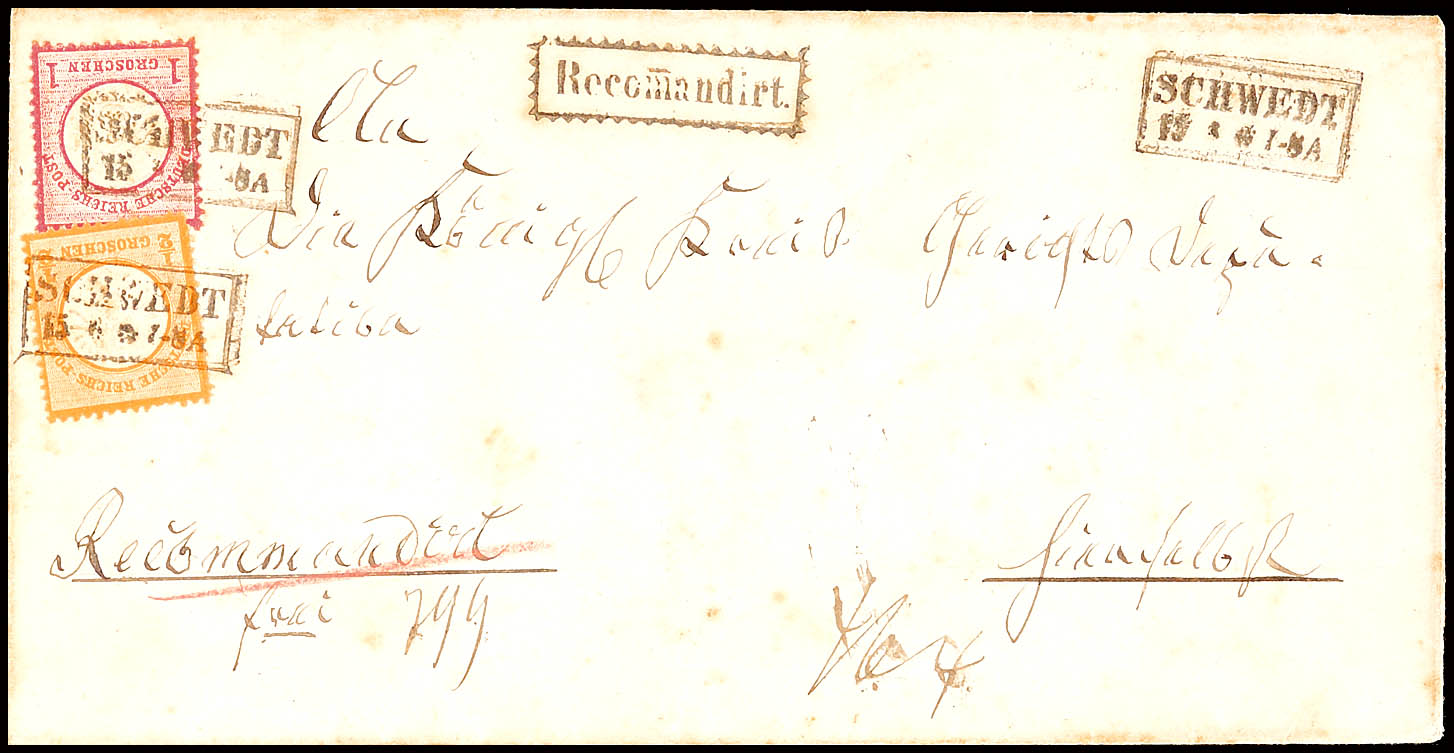 1 GROSCHEN 1
DEUTSCHE REICHS-POST
SCHWEDT
15 7-8A
½ GROSCHEN ½
DEUTSCHE REICHS-POST
SCHWEDT
15 6 7-8A
Recom̅andirt.
SCHWEDT
15 6 7-8A
An
Die Königl Kreis Gerichts Depu-
tation
Recommandirt
frei 799
hierselbst